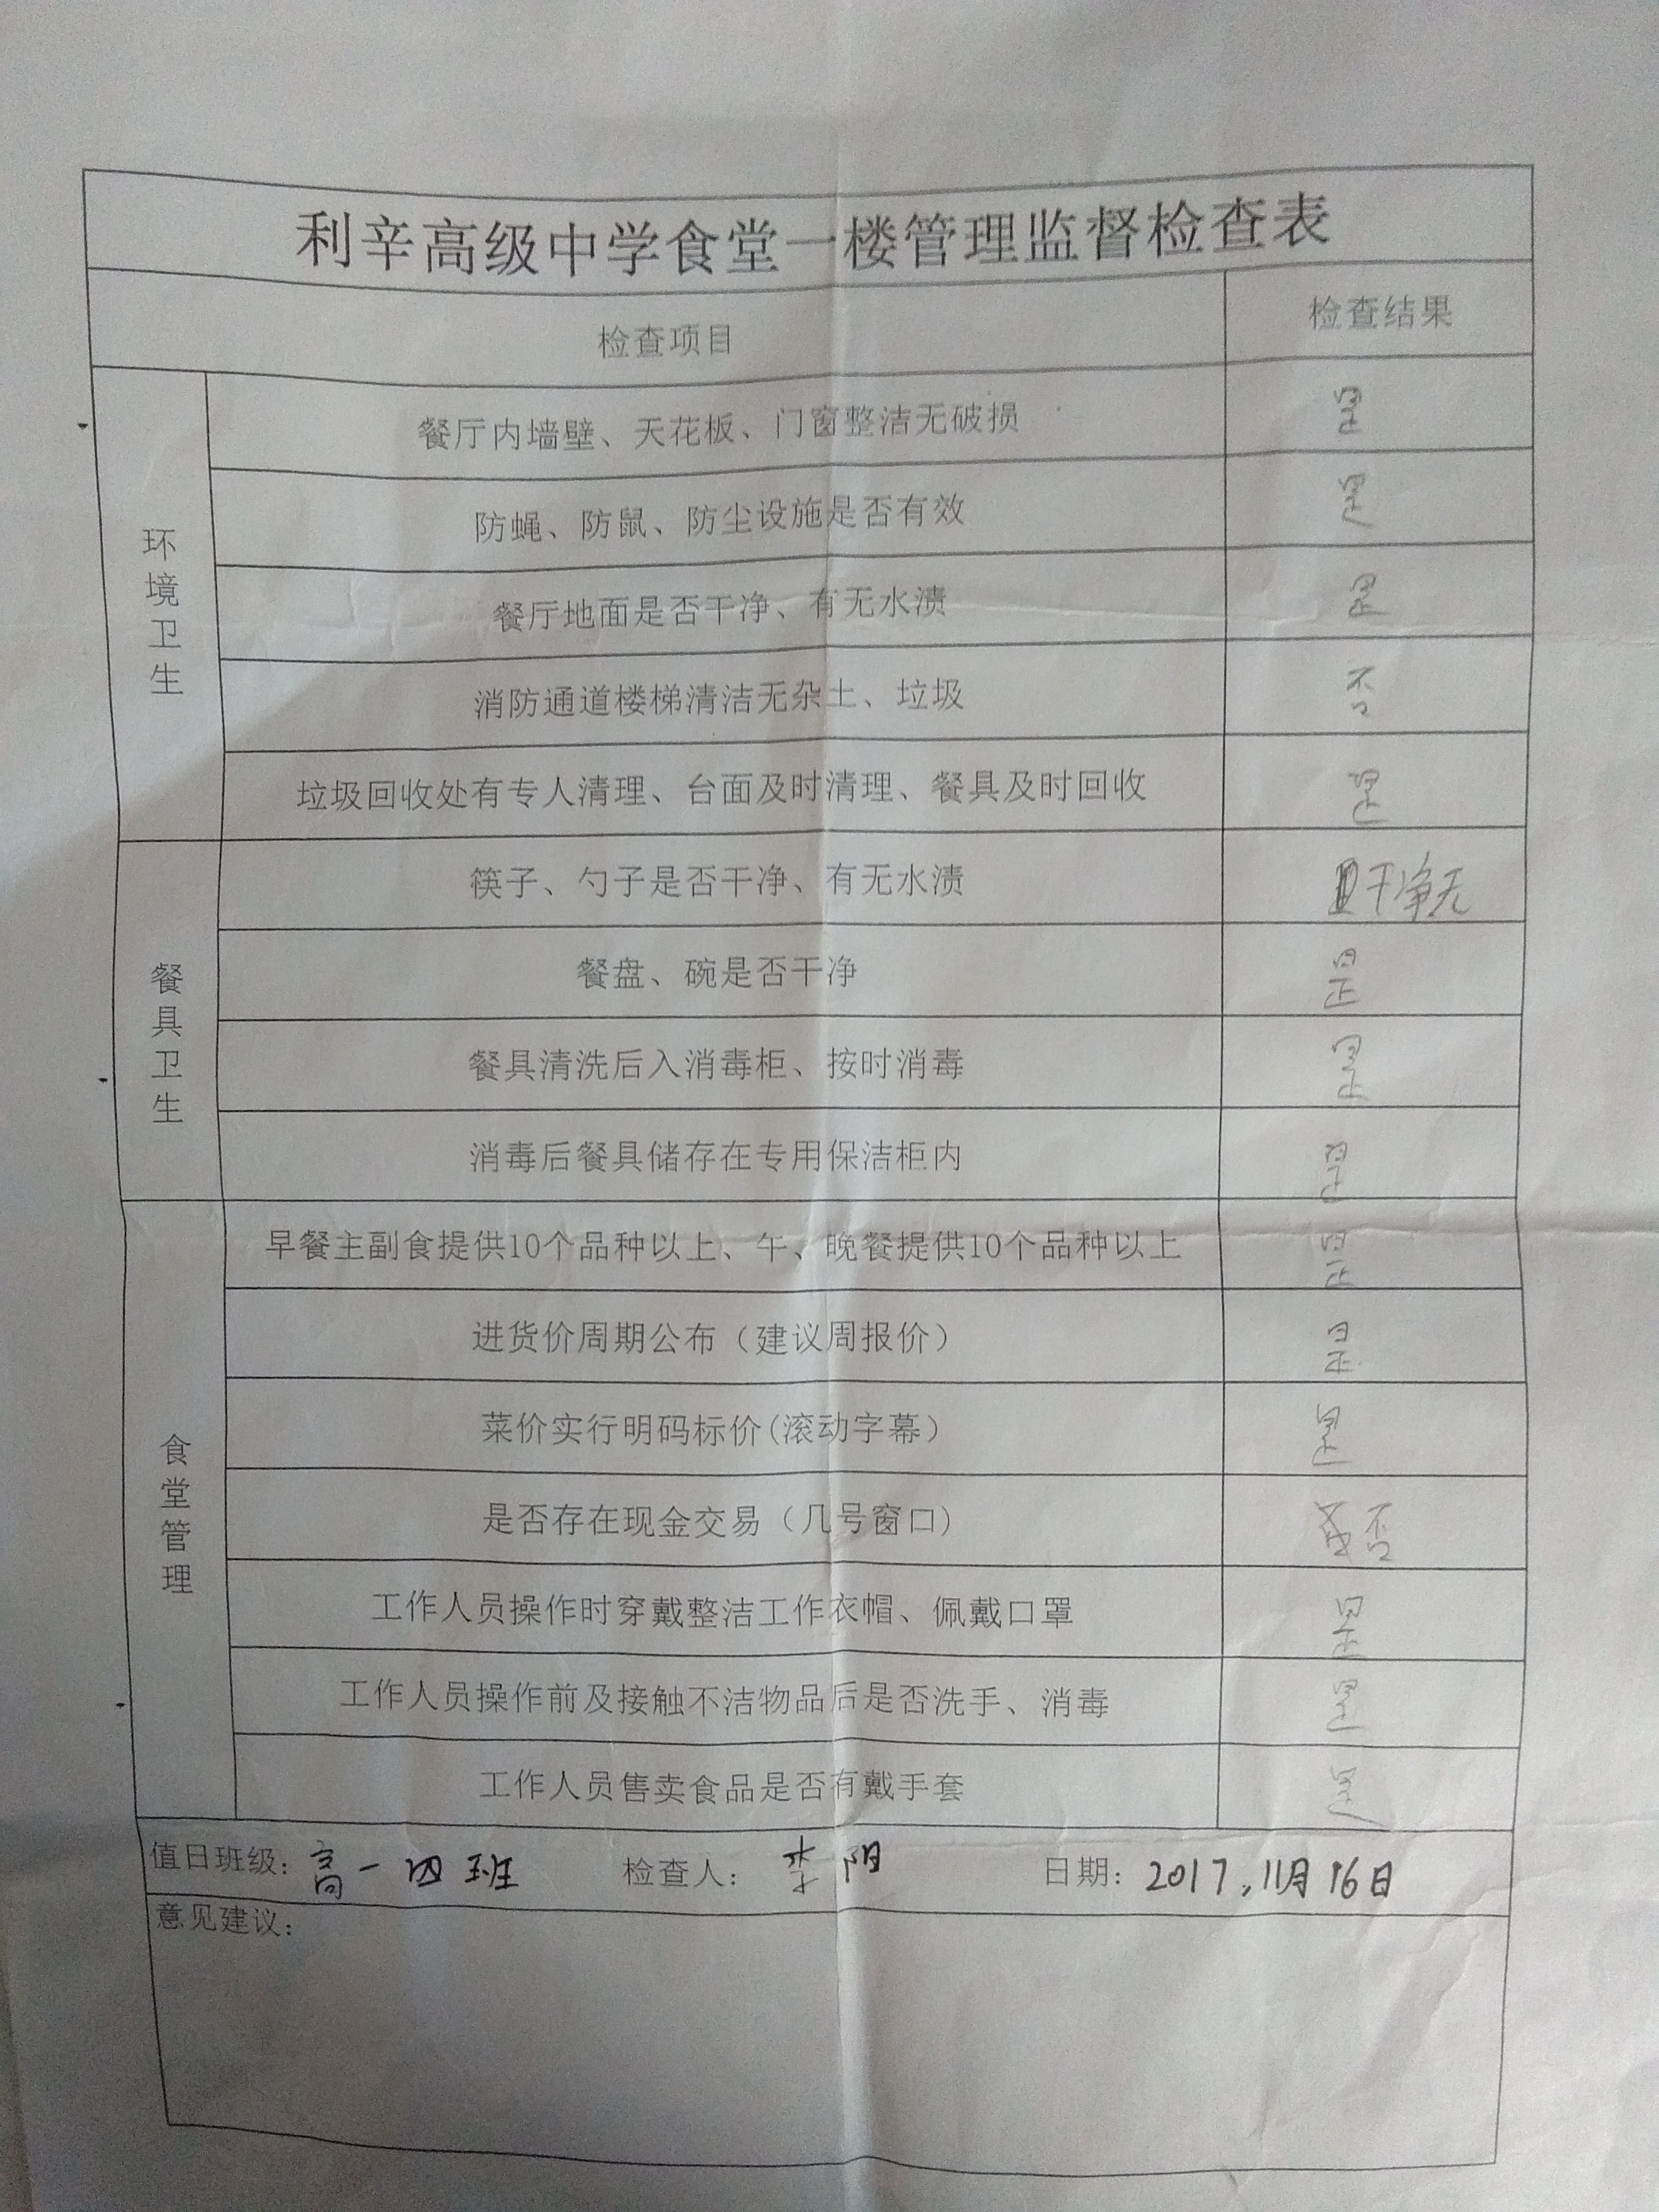 利辛高级中学食堂一楼管理监督检查表
检查项目 检查结果
环境卫生
餐厅内墙壁、天花板、门窗整洁无破损 是
防蝇、防鼠、防尘设施是否有效 是
餐厅地面是否干净、有无水渍 是
消防通道楼梯清洁无杂土、垃圾 否
垃圾回收处有专人清理、台面及时清理、餐具及时回收 是
餐具卫生
筷子、勺子是否干净、有无水渍 干净无
餐盘、碗是否干净 是
餐具清洗后入消毒柜、按时消毒 是
消毒后餐具储存在专用保洁柜内 是
食堂管理
早餐主副食提供10个品种以上、午、晚餐提供10个品种以上 是
进货价周期公布（建议周报价） 是
菜价实行明码标价(滚动字幕） 是
是否存在现金交易（几号窗口） 否
工作人员操作时穿戴整洁工作衣帽、佩戴口罩 是
工作人员操作前及接触不洁物品后是否洗手、消毒 是
工作人员售卖食品是否有戴手套 是
值日班级：高一四班 检查人：李阳 日期：2017.11月16日
意见建议：